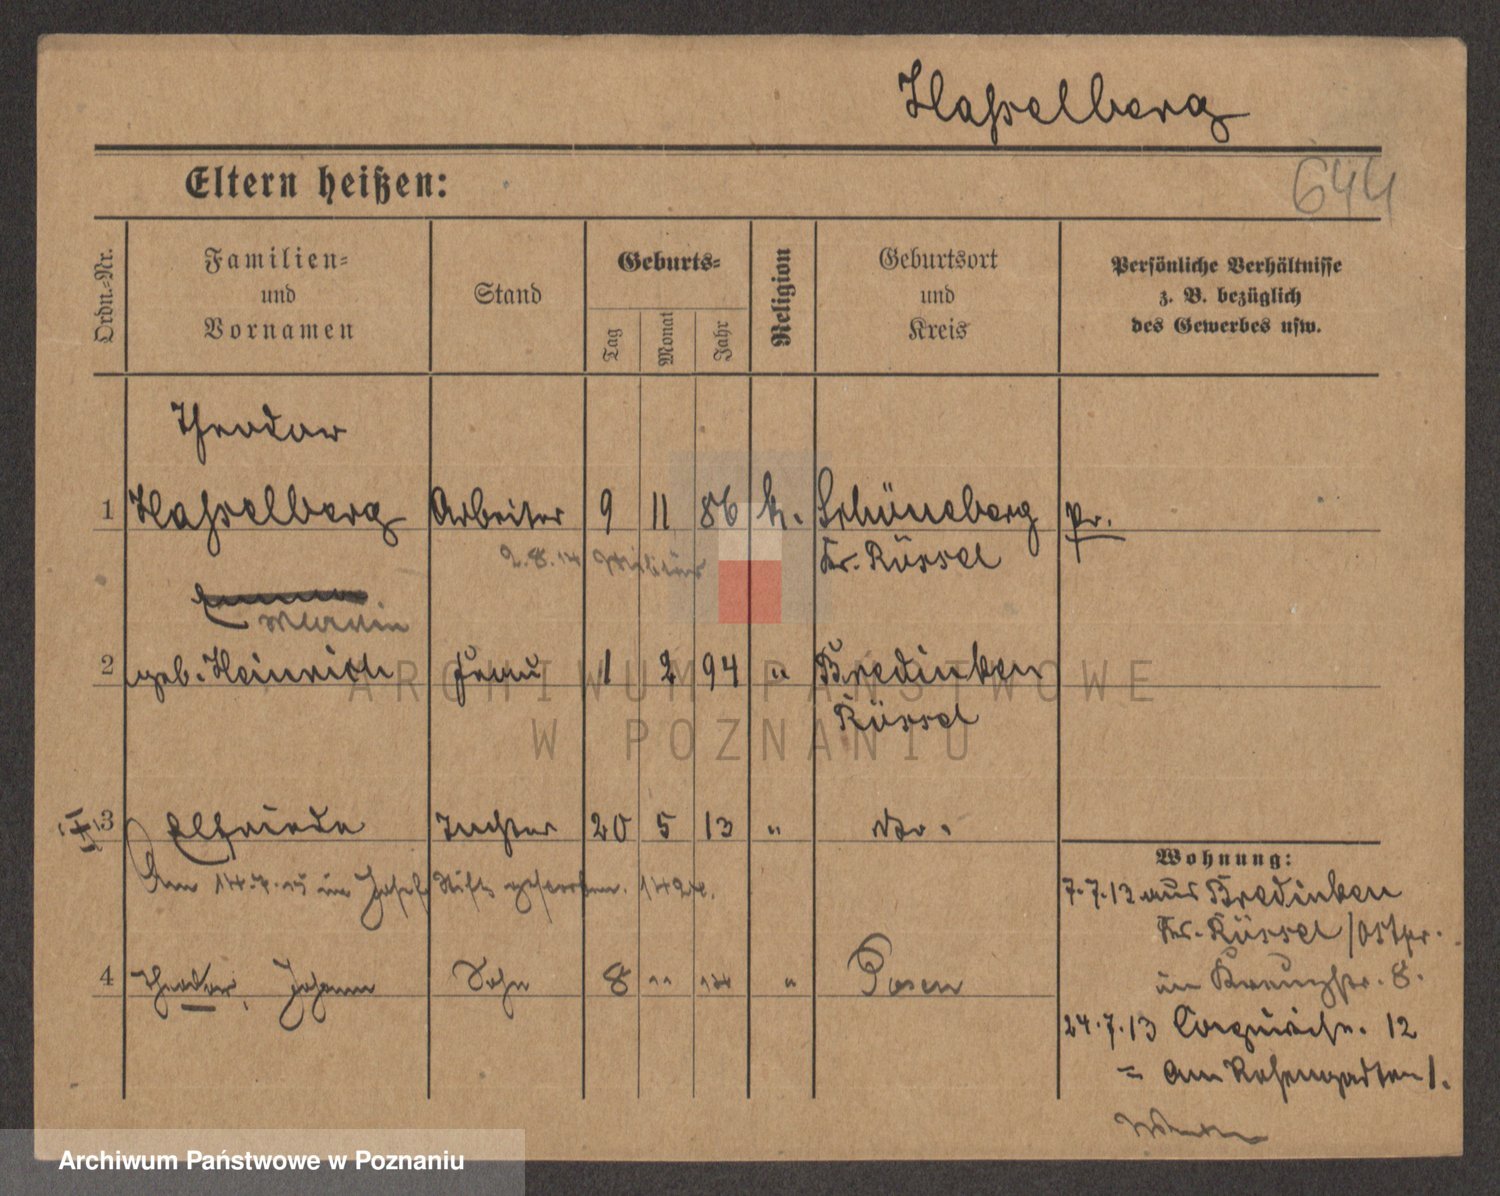 Hasselberg
644
Eltern heißen:
Ordn.=Nr.
Familien=
und
Vornamen
Stand
Geburts=
Tag
Monat
Jahr
Religion
Geburtsort
und
Kreis
Persönliche Verhältnisse
z. B. bezüglich
des Gewerbes usw.
Theodor
1 Hasselberg Arbeiter 9 11 86 k. Schöneberg pr.
2.8.14 Militär Kr. Rössel
2 geb. Heinrich Frau 1 2 94 " Bredinken
Rössel
3 Elfriede Tochter 20 5 13 " dto.
Am 14.7.15 im Josef Stift gestorben.
4 Theodor, Johann Sohn 8 " " Posen
Wohnung:
7.7.13 aus Bredinken
Kr. Rössel /Ostpr.
in Kreuzstr. 8.
24.7.13 12
= Am Rosengarten 1.
ARCHIWUM PAŃSTWOWE
W POZNANIU
Archiwum Państwowe w Poznaniu